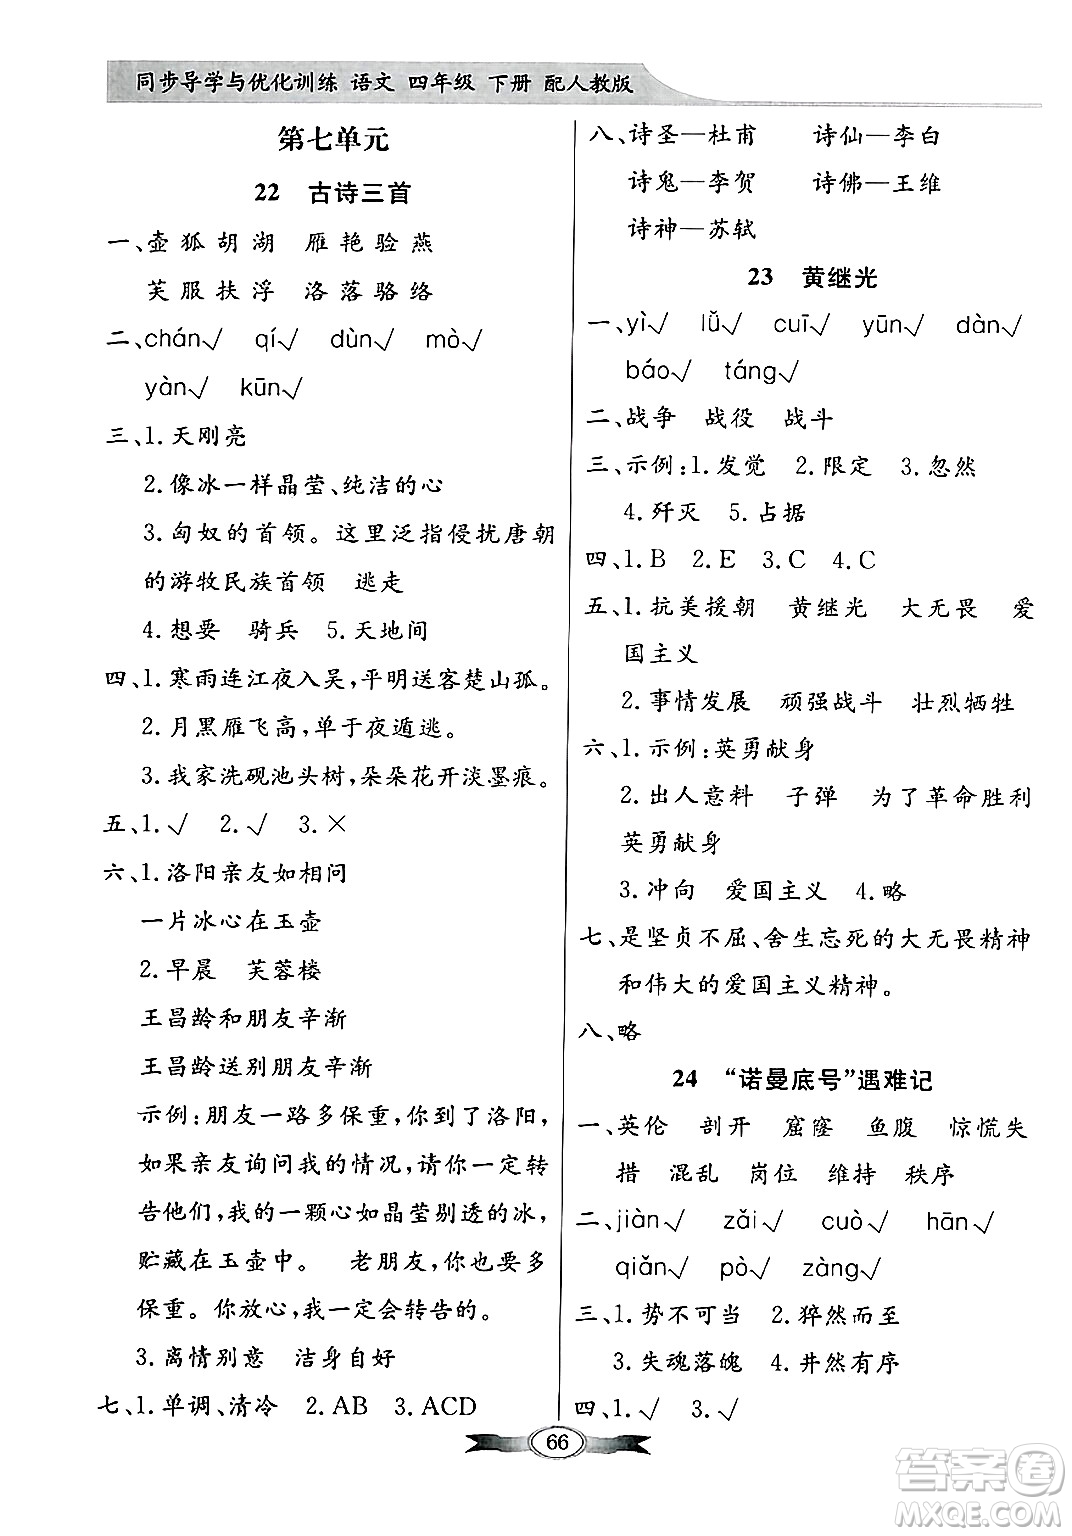 同步导学与优化训练 语文 四年级 下册 配人教版
第七单元
22 古诗三首
一、壶 狐 胡 湖 雁 艳 验 燕
芙 服 扶 浮 洛 落 骆 络
二、chán√ qí√ dùn√ mò√
yàn√ kūn√
三、1.天刚亮
2.像冰一样晶莹、纯洁的心
3.匈奴的首领。这里泛指侵扰唐朝
的游牧民族首领 逃走
4.想要 骑兵 5.天地间
四、1.寒雨连江夜入吴,平明送客楚山孤。
2.月黑雁飞高,单于夜遁逃。
3.我家洗砚池头树,朵朵花开淡墨痕。
五、1.√ 2.√ 3.×
六、1.洛阳亲友如相问
一片冰心在玉壶
2.早晨 芙蓉楼
王昌龄和朋友辛渐
王昌龄送别朋友辛渐
示例:朋友一路多保重,你到了洛阳,
如果亲友询问我的情况,请你一定转
告他们,我的一颗心如晶莹剔透的冰,
贮藏在玉壶中。 老朋友,你也要多
保重。你放心,我一定会转告的。
3.离情别意 洁身自好
七、1.单调、清冷 2.AB 3.ACD
八、诗圣—杜甫 诗仙—李白
诗鬼—李贺 诗佛—王维
诗神—苏轼
23 黄继光
一、yì√ lǚ√ cuī√ yūn√ dàn√
báo√ táng√
二、战争 战役 战斗
三、示例:1.发觉 2.限定 3.忽然
4.歼灭 5.占据
四、1.B 2.E 3.C 4.C
五、1.抗美援朝 黄继光 大无畏 爱
国主义
2.事情发展 顽强战斗 壮烈牺牲
六、1.示例:英勇献身
2.出人意料 子弹 为了革命胜利
英勇献身
3.冲向 爱国主义 4.略
七、是坚贞不屈、舍生忘死的大无畏精神
和伟大的爱国主义精神。
八、略
24 “诺曼底号”遇难记
一、英伦 剖开 窟窿 鱼腹 惊慌失
措 混乱 岗位 维持 秩序
二、jiàn√ zāi√ cuò√ hān√
qiǎn√ pò√ zàng√
三、1.势不可当 2.猝然而至
3.失魂落魄 4.井然有序
四、1.√ 3.√
66
答案圈
MXQE.COM